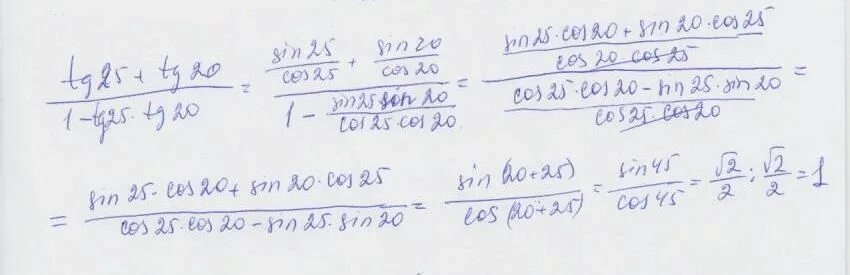 (tg25 + tg20)/(1 - tg25 · tg20) = (sin25/cos25 + sin20/cos20)/(1 - sin25 sin20/cos25·cos20) = ((sin25·cos20 + sin20·cos25)/(cos20 cos25))/((cos25·cos20 - sin25·sin20)/(cos25·cos20)) =
= (sin25·cos20 + sin20·cos25)/(cos25·cos20 - sin25·sin20) = sin(20+25)/cos(20+25) = sin45/cos45 = √2/2 : √2/2 = 1